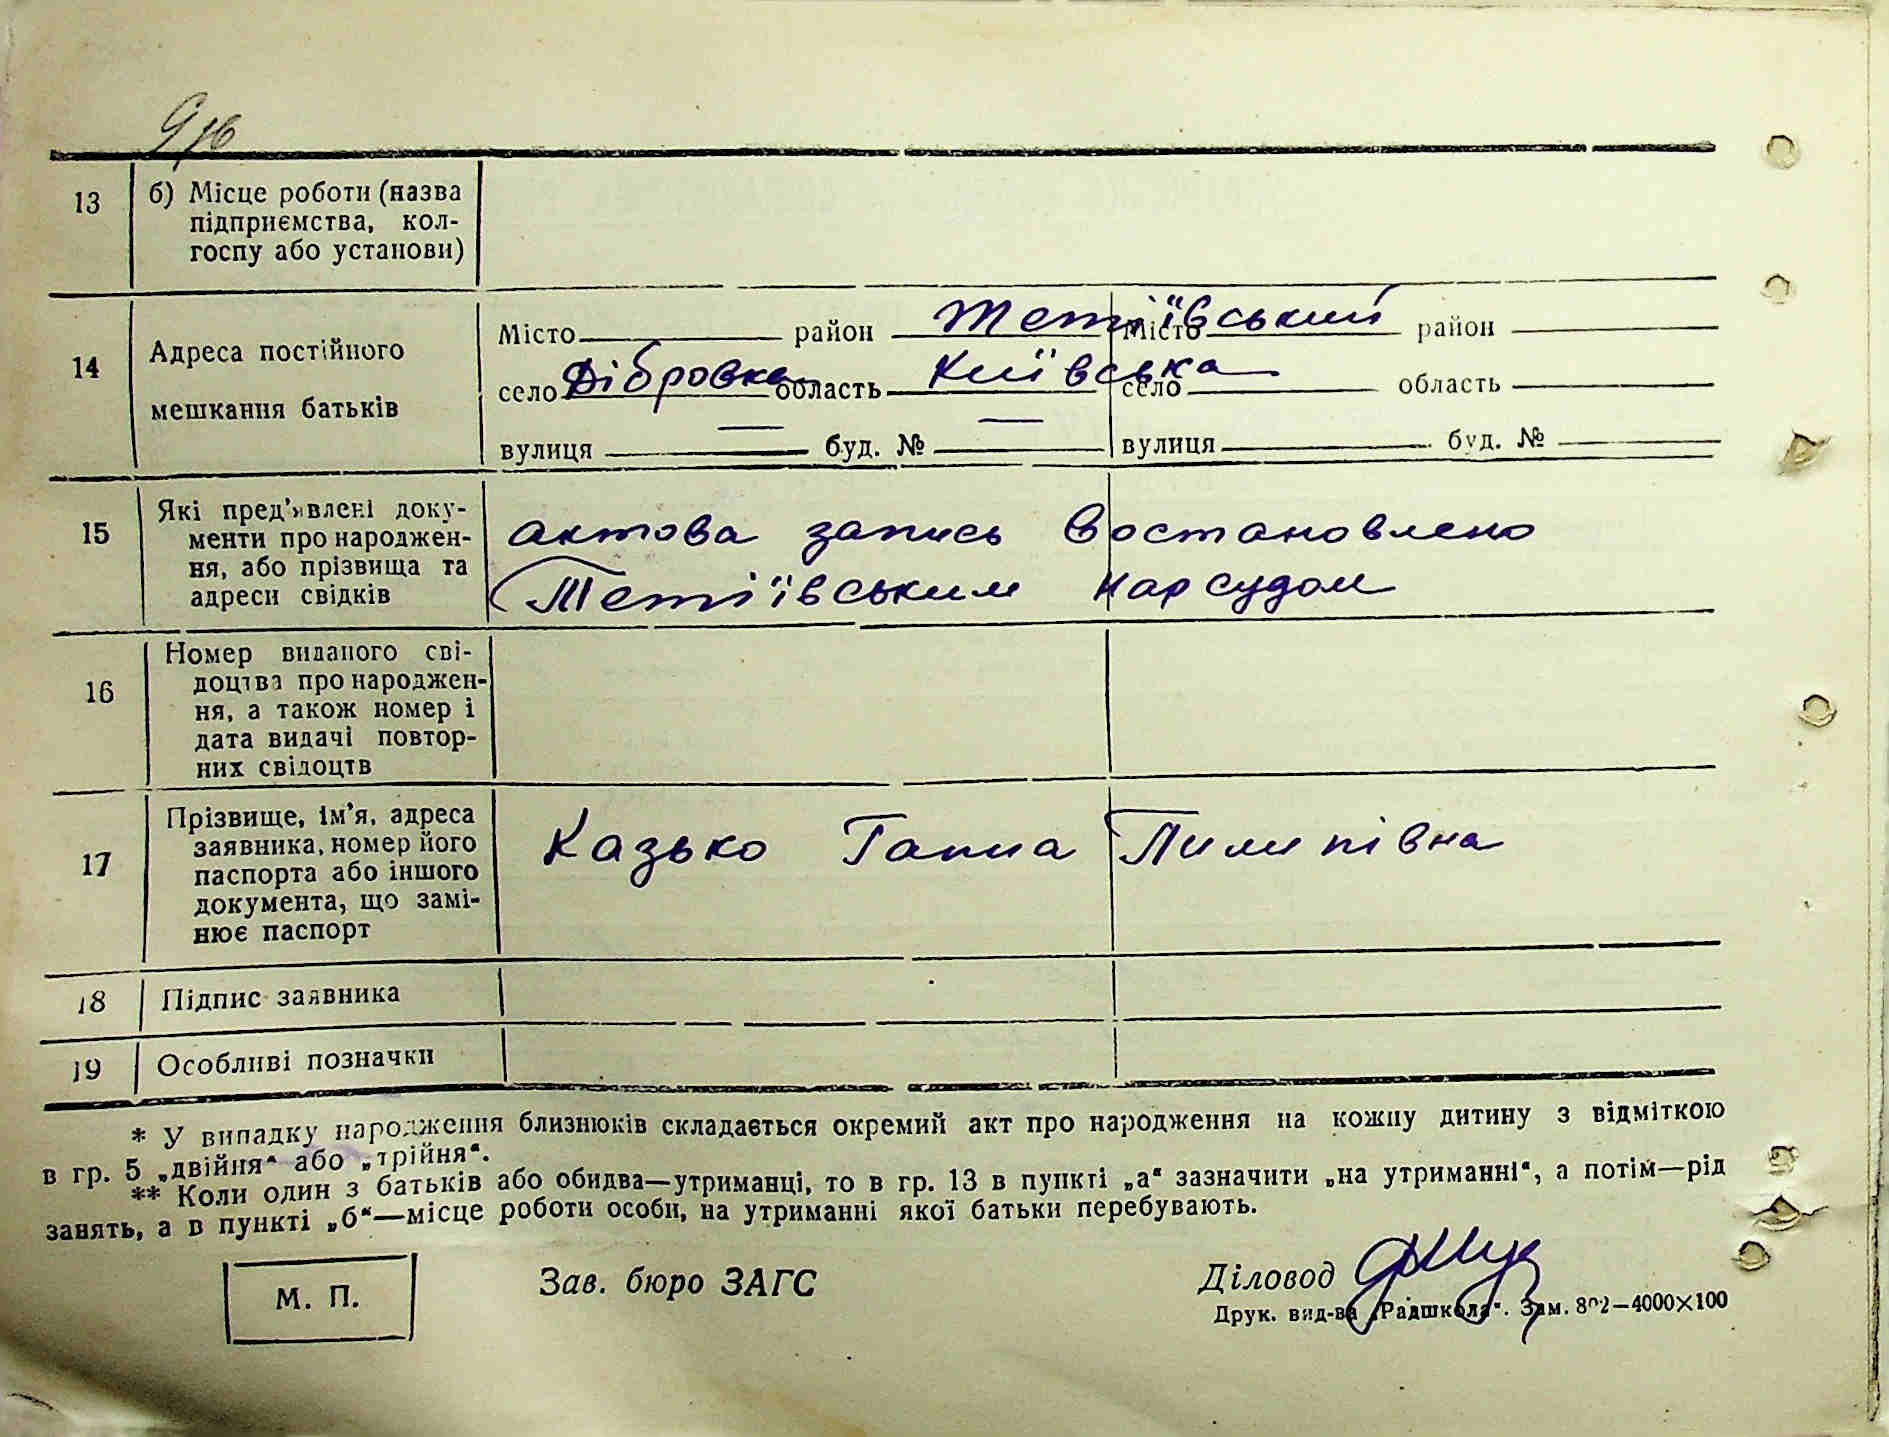 13 б) Місце роботи (назва
підприємства, кол-
госпу або установи)
14 Адреса постійного
мешкання батьків
Місто район Тетіївський Місто район
село Дібровка область Київська село область
вулиця — буд. № — вулиця буд. №
15 Які пред'явлені доку-
менти про народжен-
ня, або прізвища та
адреси свідків
актова запись востановлено
Тетіївським нарсудом
16 Номер виданого сві-
доцтва про народжен-
ня, а також номер і
дата видачі повтор-
них свідоцтв
17 Прізвище, ім'я, адреса
заявника, номер його
паспорта або іншого
документа, що замі-
нює паспорт
Казько Ганна Пилипівна
18 Підпис заявника
19 Особливі позначки
* У випадку народження близнюків складається окремий акт про народження на кожну дитину з відміткою
в гр. 5 „двійня“ або „трійня“.
** Коли один з батьків або обидва—утриманці, то в гр. 13 в пункті „а“ зазначити „на утриманні“, а потім—рід
занять, а в пункті „б“—місце роботи особи, на утриманні якої батьки перебувають.
М. П.
Зав. бюро ЗАГС
Діловод
Друк. вид-ва „Радшкола“. Зам. 802—4000×100